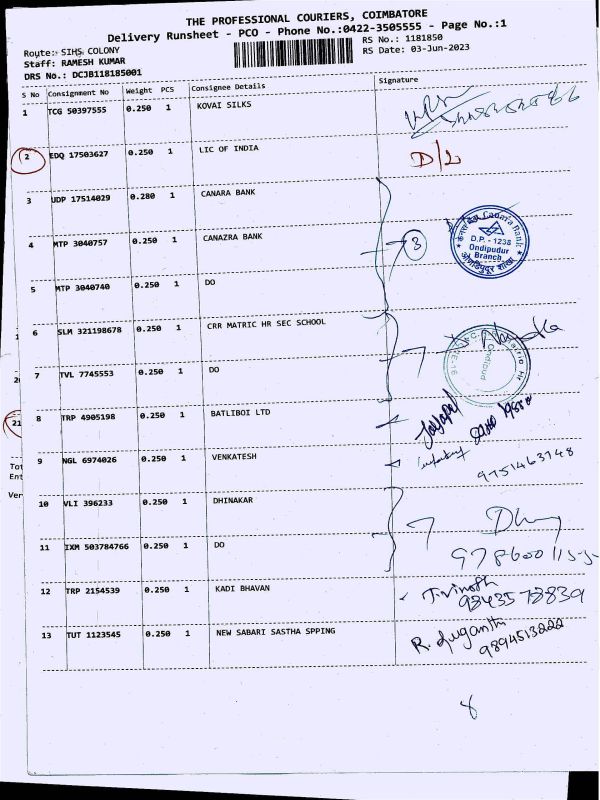 THE PROFESSIONAL COURIERS, COIMBATORE
Delivery Runsheet - PCO - Phone No.:0422-3505555 - Page No.:1
Route: SIHS COLONY
RS No.: 1181850
Staff: RAMESH KUMAR
RS Date: 03-Jun-2023
DRS No.: DCJB118185001
S No Consignment No Weight PCS Consignee Details Signature
1 TCG 50397555 0.250 1 KOVAI SILKS
2 EDQ 17503627 0.250 1 LIC OF INDIA D/L
3 UDP 17514029 0.280 1 CANARA BANK
4 MTP 3040757 0.250 1 CANAZRA BANK 3
Canara Bank
D.P. - 1238
Ondipudur
Branch
5 MTP 3040740 0.250 1 DO
6 SLM 321198678 0.250 1 CRR MATRIC HR SEC SCHOOL
7 TVL 7745553 0.250 1 DO
8 TRP 4905198 0.250 1 BATLIBOI LTD
9 NGL 6974026 0.250 1 VENKATESH
9751463748
10 VLI 396233 0.250 1 DHINAKAR
11 IXM 503784766 0.250 1 DO
12 TRP 2154539 0.250 1 KADI BHAVAN T.vinoth
13 TUT 1123545 0.250 1 NEW SABARI SASTHA SPPING
9894513222
8
21
Tot
Ent
Ver